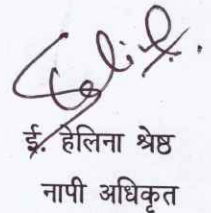 ई. हेलिना श्रेष्ठ
नापी अधिकृत